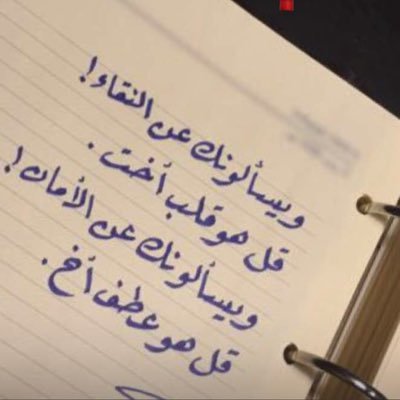 ويسألونك عن النقاء!
قل هو قلب أخت.
ويسألونك عن الأمان!
قل هو عطف أخ.